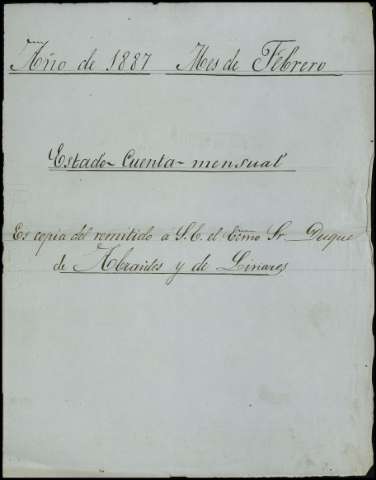 Año de 1887 Mes de Febrero
Estado-Cuenta-mensual
Es copia del remitido á S.E. el Exmo Sr Duque
de Abrantes y de Linares